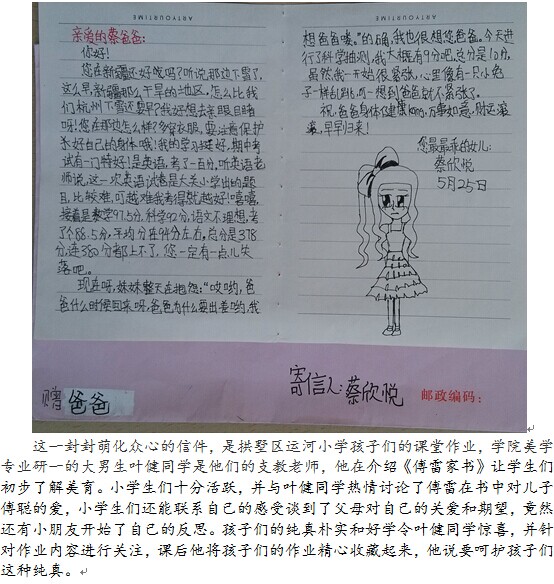 ARTYOURTIME
亲爱的蔡爸爸:
你好!
您在新疆还好吗?听说那边下雪了,
这么早,新疆那么干旱的地区,怎么比我
们杭州下雪还要早?我好想去亲眼目睹
呀!您在那边怎么样?多穿衣服,要注意保护
好自己的身体哦!我的学习挺好,期中考
试有一门特好!是英语,考了一百分,听英语老
师说,这一次英语试卷是大关小学出的题
目,比较难,可越难我考得就越好!嘻嘻,
接着是数学97.5分,科学92分,语文不理想,考
了个88.5分,平均分在94分左右,总分是378
分,连380分都上不了,您一定有一点儿失
落吧。
现在呀,妹妹整天在抱怨:“哎哟,爸
爸什么时候回来呀,爸爸为什么要出差哟,我
ARTYOURTIME
想爸爸喽。”的确,我也很想您爸爸。今天进
行了科学抽测,我大概有9分吧,总分是10分,
虽然我一开始很紧张,心里像有一只小兔
子一样乱跳,可一想到爸爸就不紧张了。
祝:爸爸身体健康kang,万事如意,财运滚
滚,早早归来!
您最最乖的女儿:
蔡欣悦
5月25日
赠 爸爸
寄信人:蔡欣悦
邮政编码:
这一封封萌化众心的信件,是拱墅区运河小学孩子们的课堂作业,学院美学
专业研一的大男生叶健同学是他们的支教老师,他在介绍《傅雷家书》让学生们
初步了解美育。小学生们十分活跃,并与叶健同学热情讨论了傅雷在书中对儿子
傅聪的爱,小学生们还能联系自己的感受谈到了父母对自己的关爱和期望,竟然
还有小朋友开始了自己的反思。孩子们的纯真朴实和好学令叶健同学惊喜,并针
对作业内容进行关注,课后他将孩子们的作业精心收藏起来,他说要呵护孩子们
这种纯真。